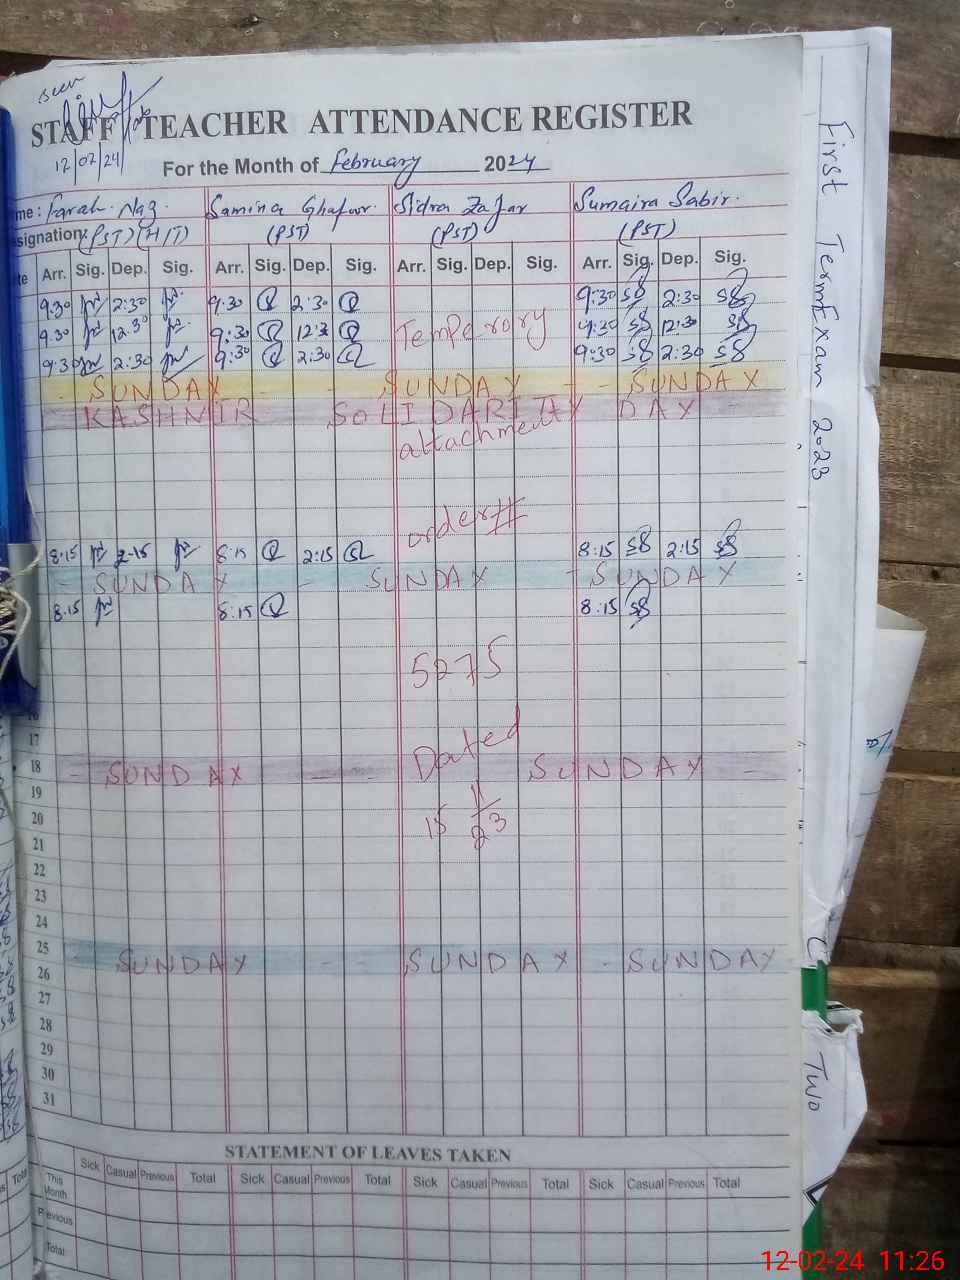 seen
STAFF TEACHER ATTENDANCE REGISTER
12/02/24
For the Month of February 2024
me: Farah Naz Samina Ghafoor. Sidra Zafar Sumaira Sabir.
signation: (PST)(H/T) (PST) (PST) (PST)
te Arr. Sig. Dep. Sig. Arr. Sig. Dep. Sig. Arr. Sig. Dep. Sig. Arr. Sig. Dep. Sig.
9:30 2:30 9:30 2:30 9:30 SB 2:30 SB
9:30 12:30 9:30 12:3 Temperory 9:30 SB 12:30 SB
9:30 2:30 9:30 2:30 9:30 SB 2:30 SB
- SUNDAY - - SUNDAY - - SUNDAY
KASHMIR SOLIDARITY DAY -
attachment
order #
8:15 2:15 8:15 2:15 8:15 SB 2:15 SB
- SUNDAY - SUNDAY - SUNDAY
8:15 8:15 8:15 SB
5275
16
17 Dated
18 - SUNDAY - - - SUNDAY -
19
20 15 11/23
21
22
23
24
25 SUNDAY - - SUNDAY - SUNDAY
26
27
28
29
30
31
STATEMENT OF LEAVES TAKEN
Sick Casual Previous Total Sick Casual Previous Total Sick Casual Previous Total Sick Casual Previous Total
This Month
Previous
Total
First Term Exam 2023
Two
12-02-24 11:26